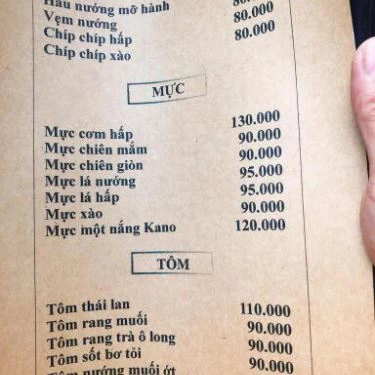 Hàu nướng mỡ hành
Vẹm nướng
Chíp chíp hấp 80.000
Chíp chíp xào 80.000
MỰC
Mực cơm hấp 130.000
Mực chiên mắm 90.000
Mực chiên giòn 90.000
Mực lá nướng 95.000
Mực lá hấp 95.000
Mực xào 90.000
Mực một nắng Kano 120.000
TÔM
Tôm thái lan 110.000
Tôm rang muối 90.000
Tôm rang trà ô long 90.000
Tôm sốt bơ tỏi 90.000
Tôm nướng muối ớt